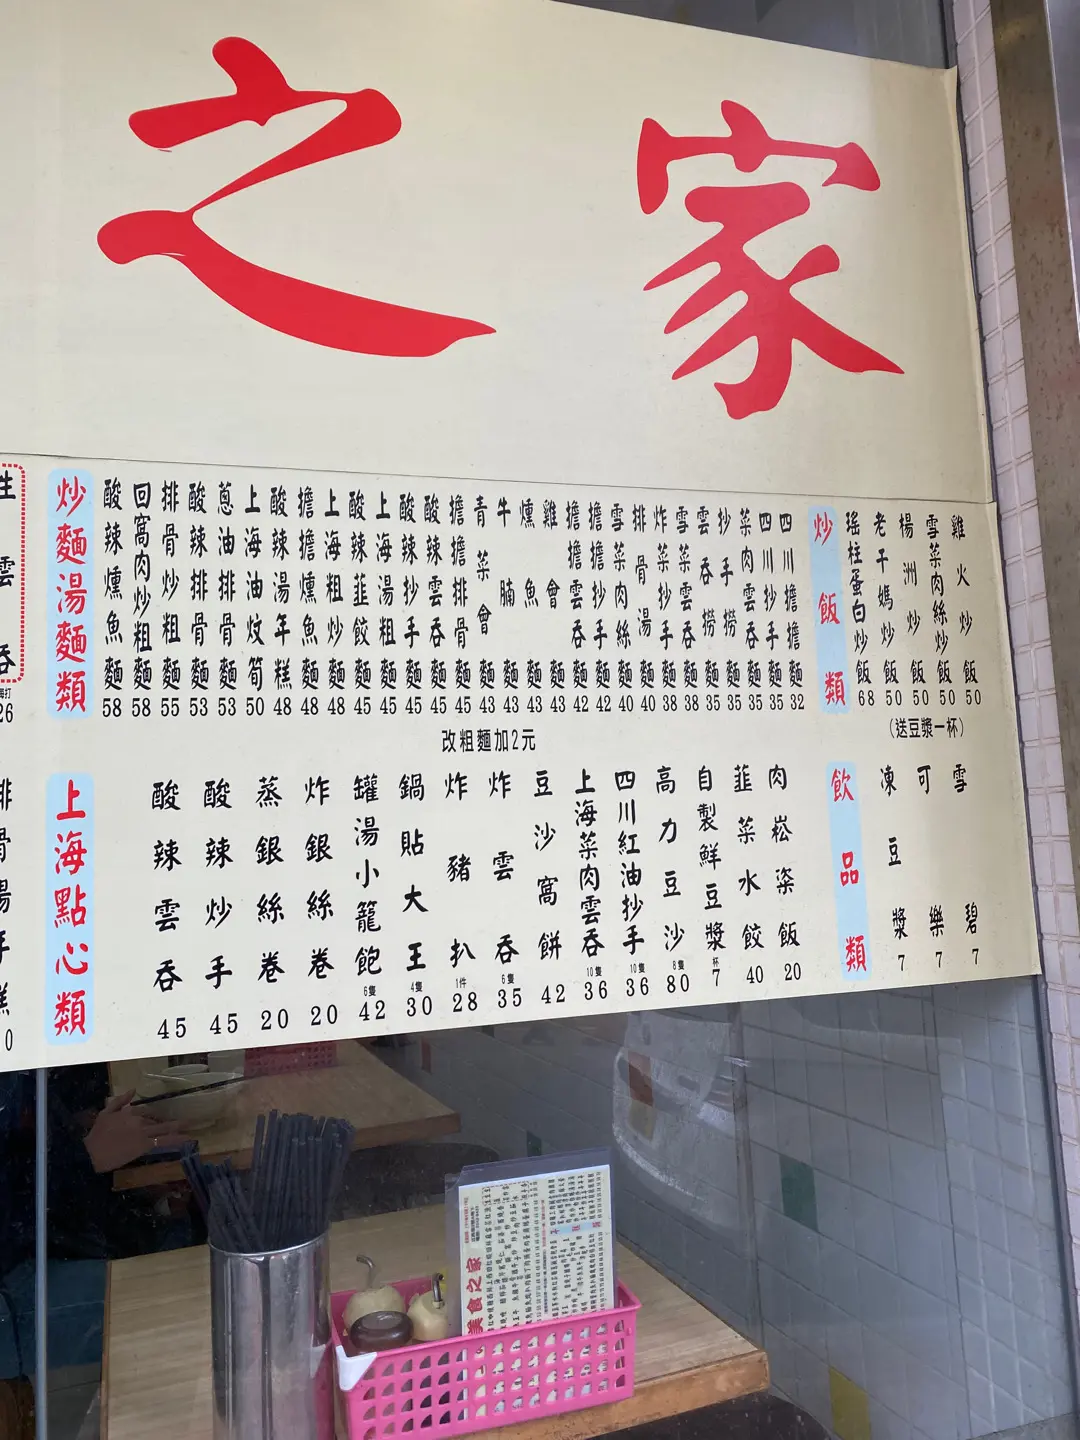 之家
炒麵湯麵類
酸辣燻魚麵 58
回窩肉炒粗麵 58
排骨炒粗麵 55
酸辣排骨麵 53
蔥油排骨麵 53
上海油炆筍 50
酸辣湯年糕 48
擔擔燻魚麵 48
上海粗炒麵 48
酸辣韮餃麵 45
上海湯粗麵 45
酸辣抄手麵 45
酸辣雲吞麵 45
擔擔排骨麵 45
青菜會麵 43
牛腩麵 43
燻魚麵 43
雞會麵 43
擔擔雲吞麵 42
擔擔抄手麵 42
雪菜肉絲麵 40
排骨湯麵 40
炸菜抄手麵 38
雪菜雲吞麵 38
雲吞撈麵 35
抄手撈麵 35
菜肉雲吞麵 35
四川抄手麵 35
四川擔擔麵 32
改粗麵加2元
炒飯類
瑤柱蛋白炒飯 68
老干媽炒飯 50
楊洲炒飯 50
雪菜肉絲炒飯 50
雞火炒飯 50
(送豆漿一杯)
上海點心類
酸辣雲吞 45
酸辣抄手 45
蒸銀絲卷 20
炸銀絲卷 20
罐湯小籠飽 6隻 42
鍋貼大王 4隻 30
炸豬扒 1件 28
炸雲吞 6隻 35
豆沙窩餅 42
上海菜肉雲吞 10隻 36
四川紅油抄手 10隻 36
高力豆沙 8隻 80
自製鮮豆漿 杯 7
韮菜水餃 40
肉崧粢飯 20
飲品類
凍豆漿 7
可樂 7
雪碧 7
美食之家